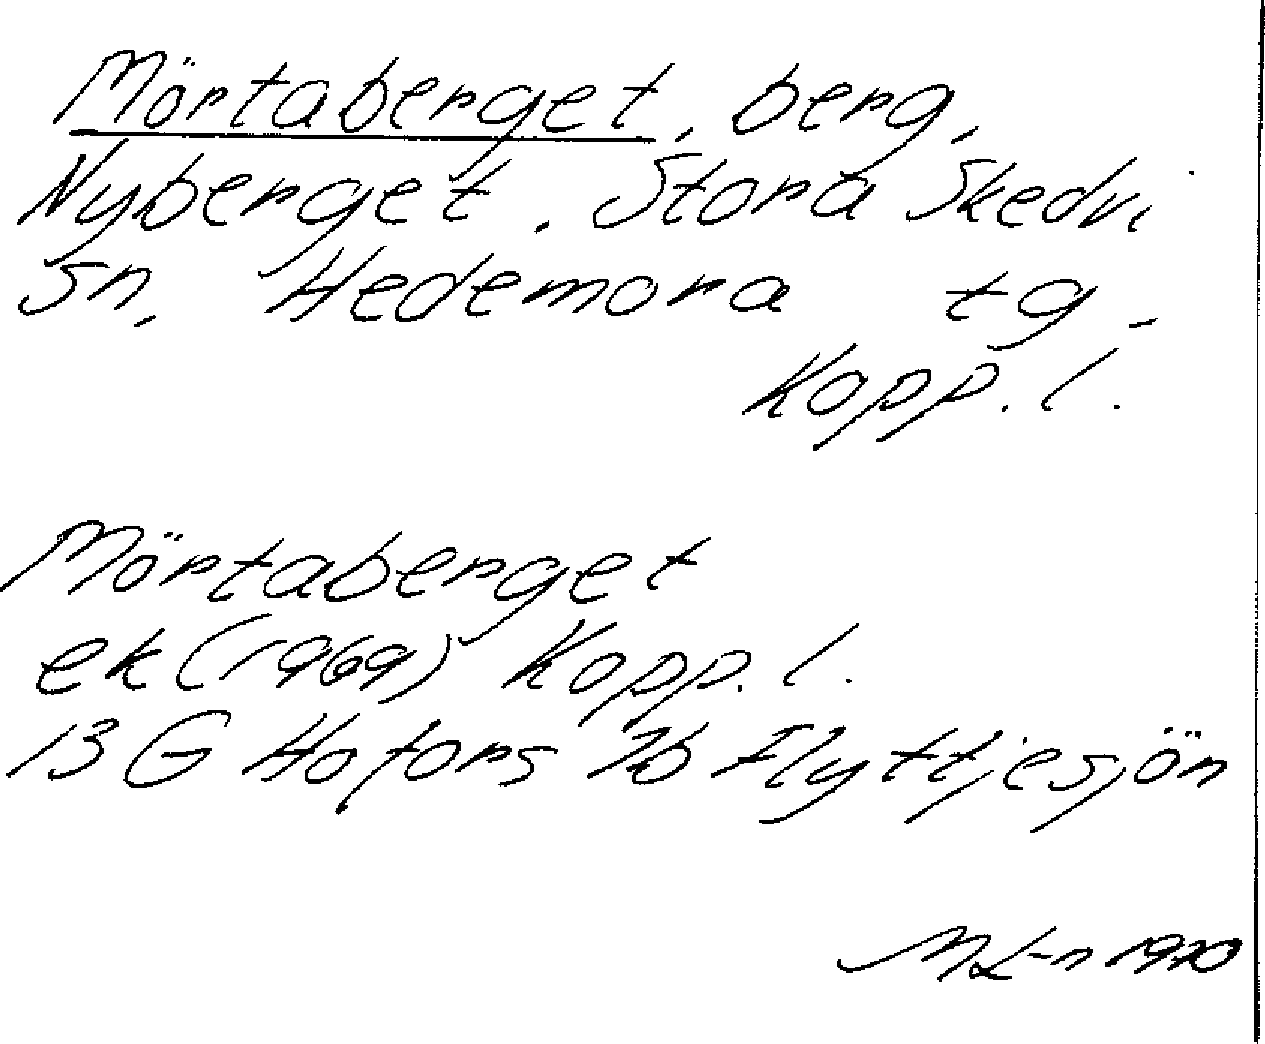 Mörtaberget, berg,
Nyberget. Stora Skedvi
sn, Hedemora tg.
Kopp. l.
Mörtaberget
ek (1969) Kopp. l.
13 G Hofors 7b Flyttjesjön
ML-n 1970